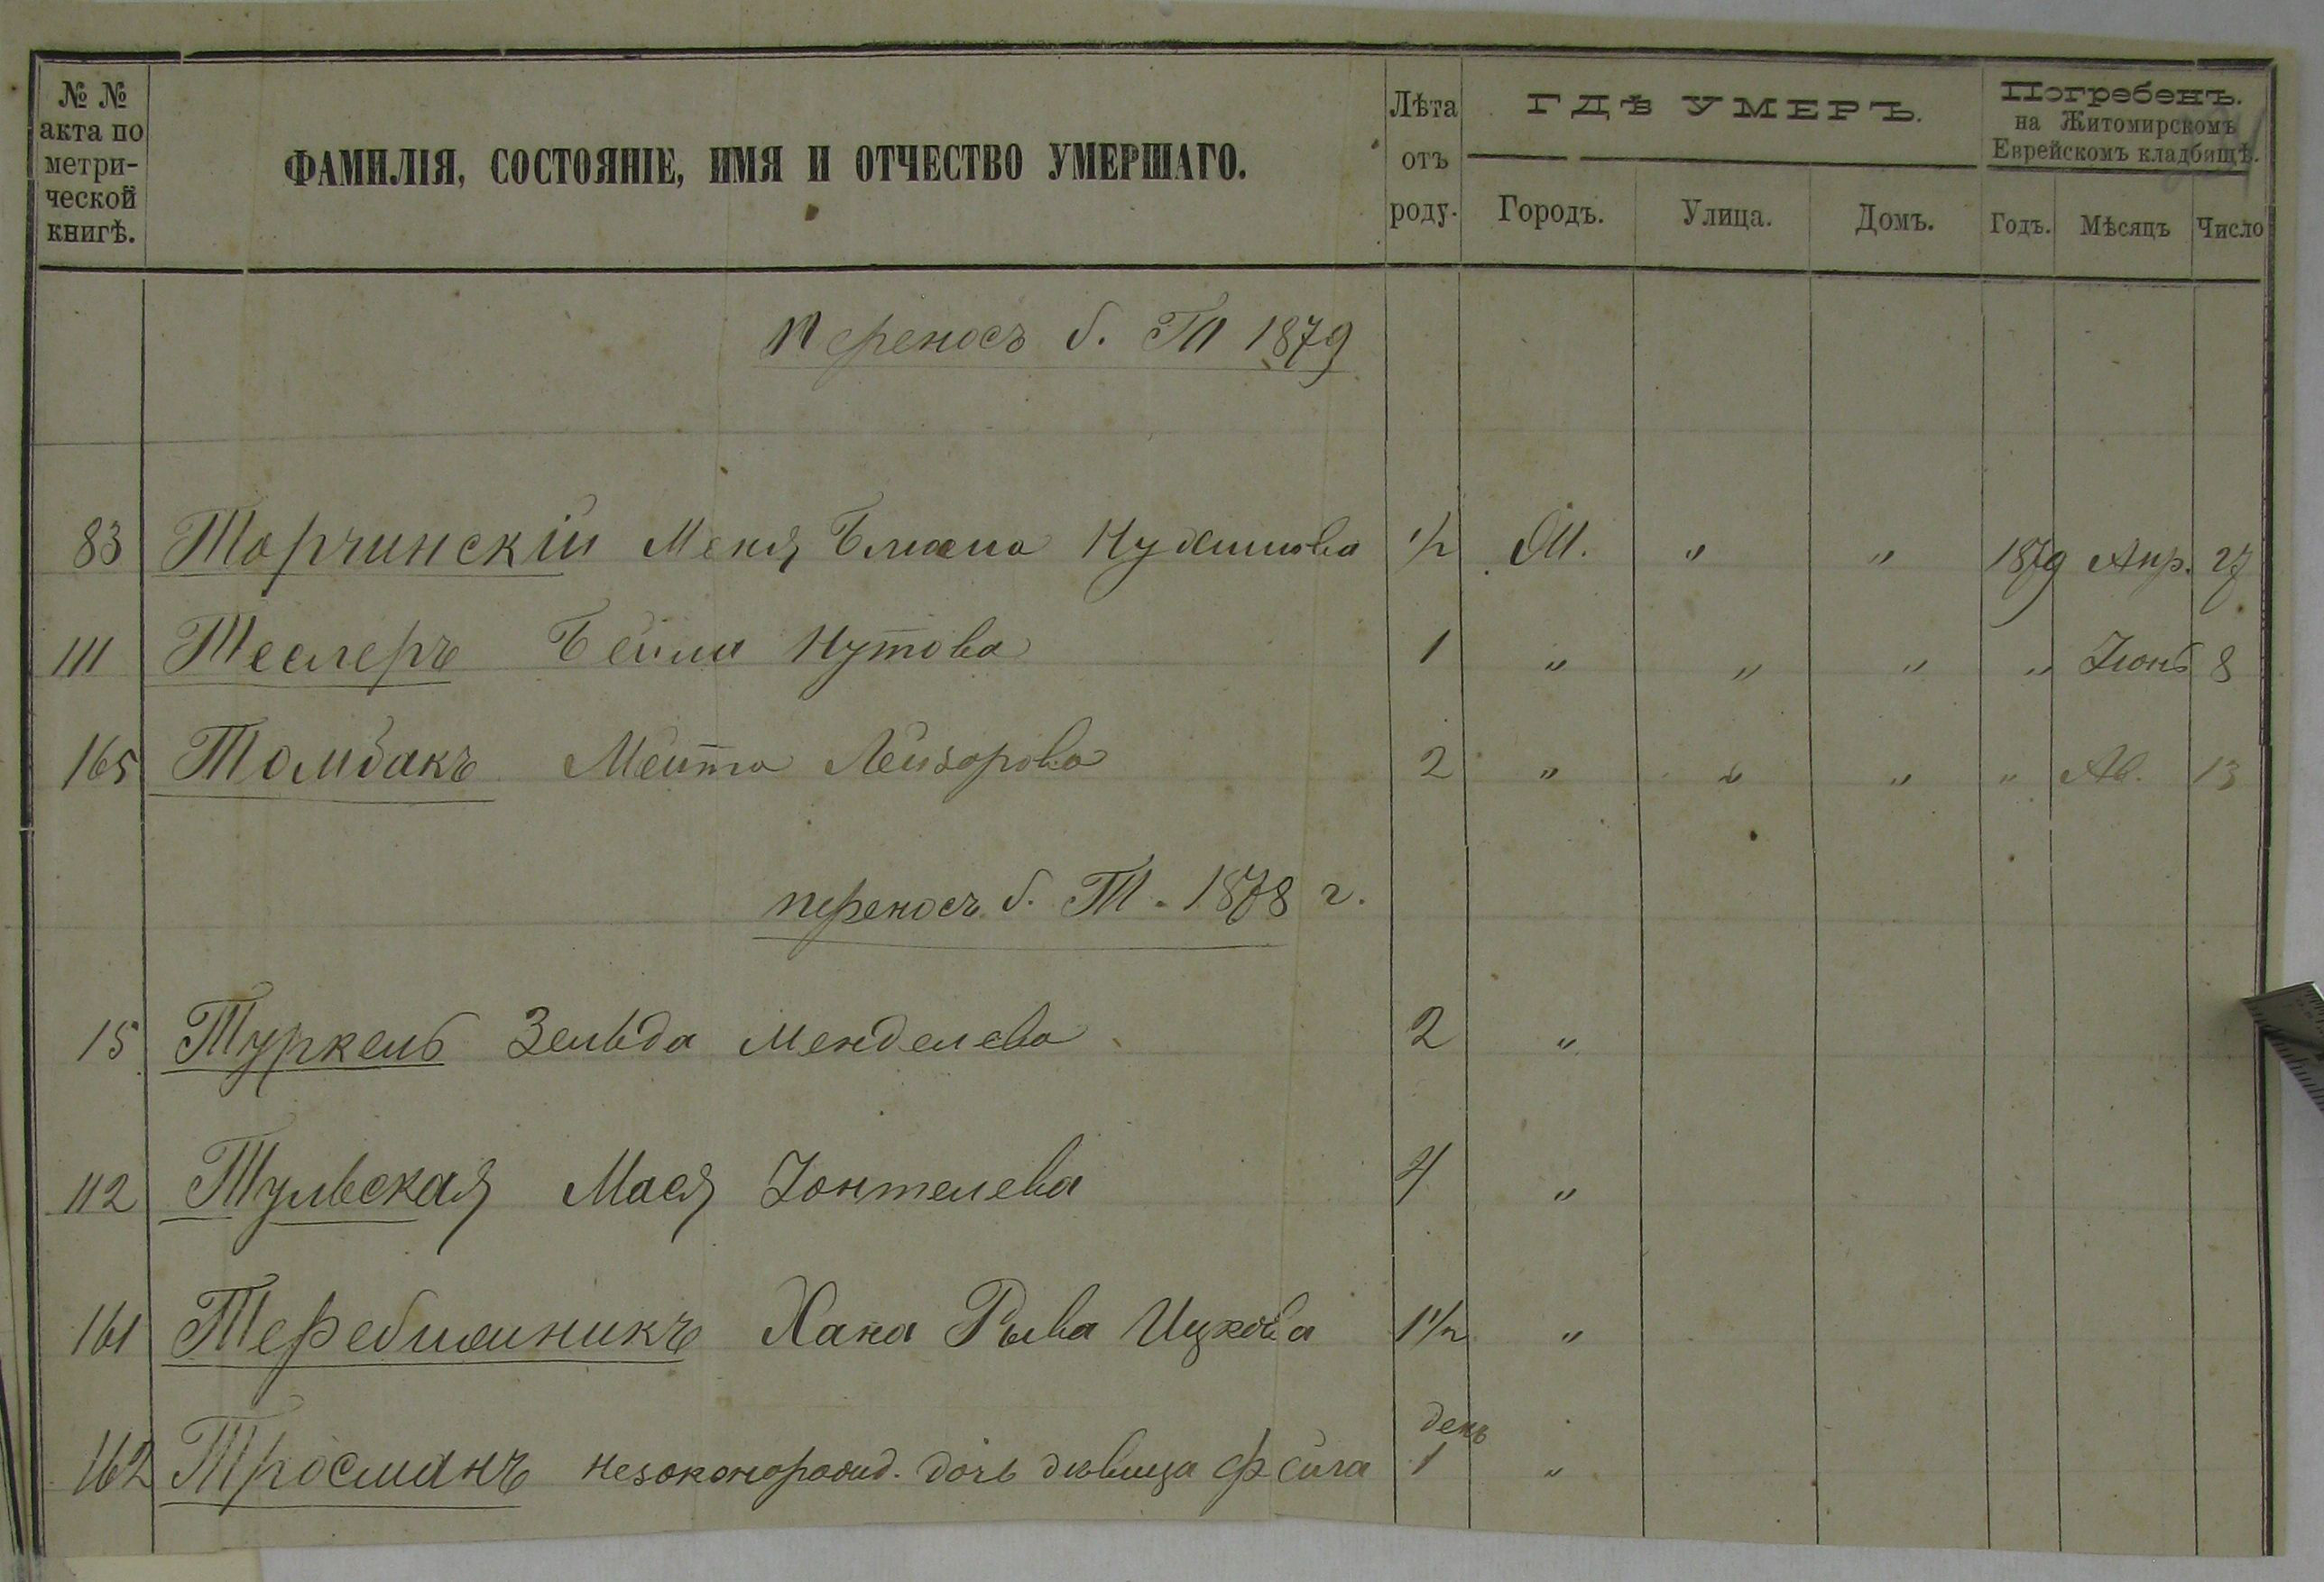 № №
акта по
метри-
ческой
книгѣ.
ФАМИЛІЯ, СОСТОЯНІЕ, ИМЯ И ОТЧЕСТВО УМЕРШАГО.
Лѣта
отъ
роду.
ГДѢ УМЕРЪ.
Городъ. Улица. Домъ.
Погребенъ.
на Житомирскомъ
Еврейскомъ кладбищѣ.
Годъ. Мѣсяцъ Число
Переносъ б. Т 1879
83 Торчинскій Меня Нухимова 1/2 " " 1879 Апр. 27
111 Теслеръ Бейла Нутова 1 " " " " Іюнь 8
165 Томбакъ Мейта Лейзорова 2 " " " " Ав. 13
переносъ б. Т. 1878 г.
15 Туркель Зельда Менделева 2 "
112 Тульская Мася Іонтелева 4 "
161 Теребилникъ Хана Рыва Ицкова 1 1/2 "
162 Тросманъ незаконорожд. дочь дѣвица Фейга день 1 "